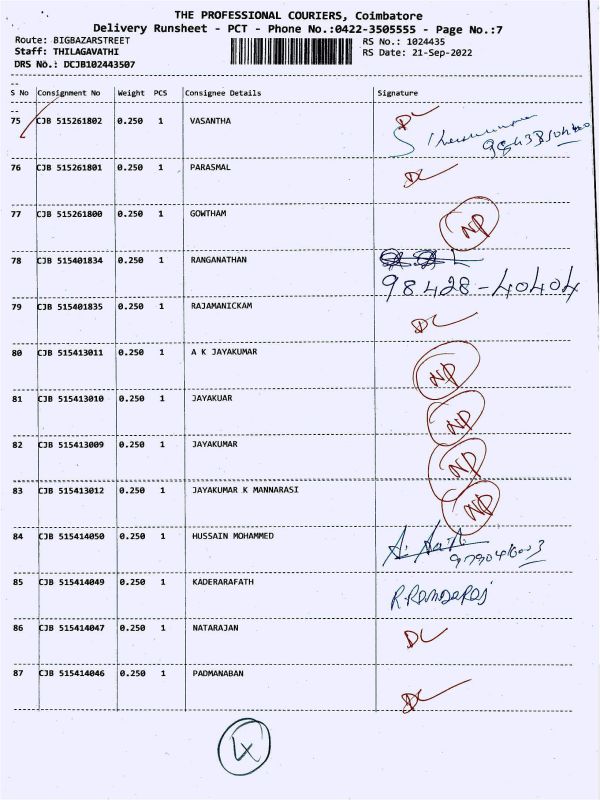 THE PROFESSIONAL COURIERS, Coimbatore
Delivery Runsheet - PCT - Phone No.:0422-3505555 - Page No.:7
Route: BIGBAZARSTREET RS No.: 1024435
Staff: THILAGAVATHI RS Date: 21-Sep-2022
DRS No.: DCJB102443507
S No Consignment No Weight PCS Consignee Details Signature
75 CJB 515261802 0.250 1 VASANTHA DL
76 CJB 515261801 0.250 1 PARASMAL DL
77 CJB 515261800 0.250 1 GOWTHAM NP
78 CJB 515401834 0.250 1 RANGANATHAN
98428-40404
79 CJB 515401835 0.250 1 RAJAMANICKAM DL
80 CJB 515413011 0.250 1 A K JAYAKUMAR NP
81 CJB 515413010 0.250 1 JAYAKUAR NP
82 CJB 515413009 0.250 1 JAYAKUMAR NP
83 CJB 515413012 0.250 1 JAYAKUMAR K MANNARASI NP
84 CJB 515414050 0.250 1 HUSSAIN MOHAMMED
85 CJB 515414049 0.250 1 KADERARAFATH
86 CJB 515414047 0.250 1 NATARAJAN DL
87 CJB 515414046 0.250 1 PADMANABAN DL
4